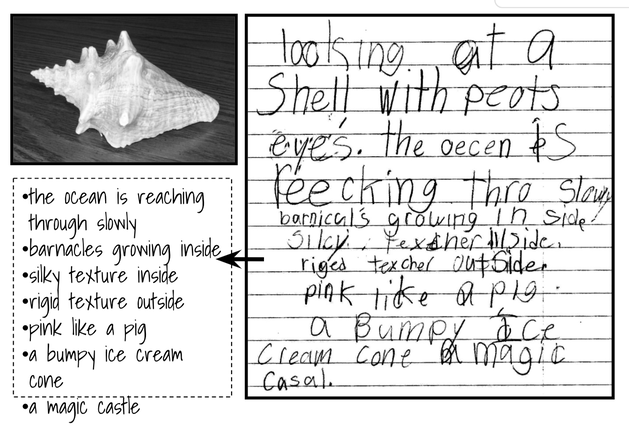 •the ocean is reaching
through slowly
•barnacles growing inside
•silky texture inside
•rigid texture outside
•pink like a pig
•a bumpy ice cream
cone
•a magic castle
looking at a
Shell with peots
eye's. the oecen is
reecking thro slowy
barnical's growing in side
Silcy. texcher inside.
riged texcher outSide.
pink like a pig.
a Bumpy Ice
Cream cone a magic
Casal.